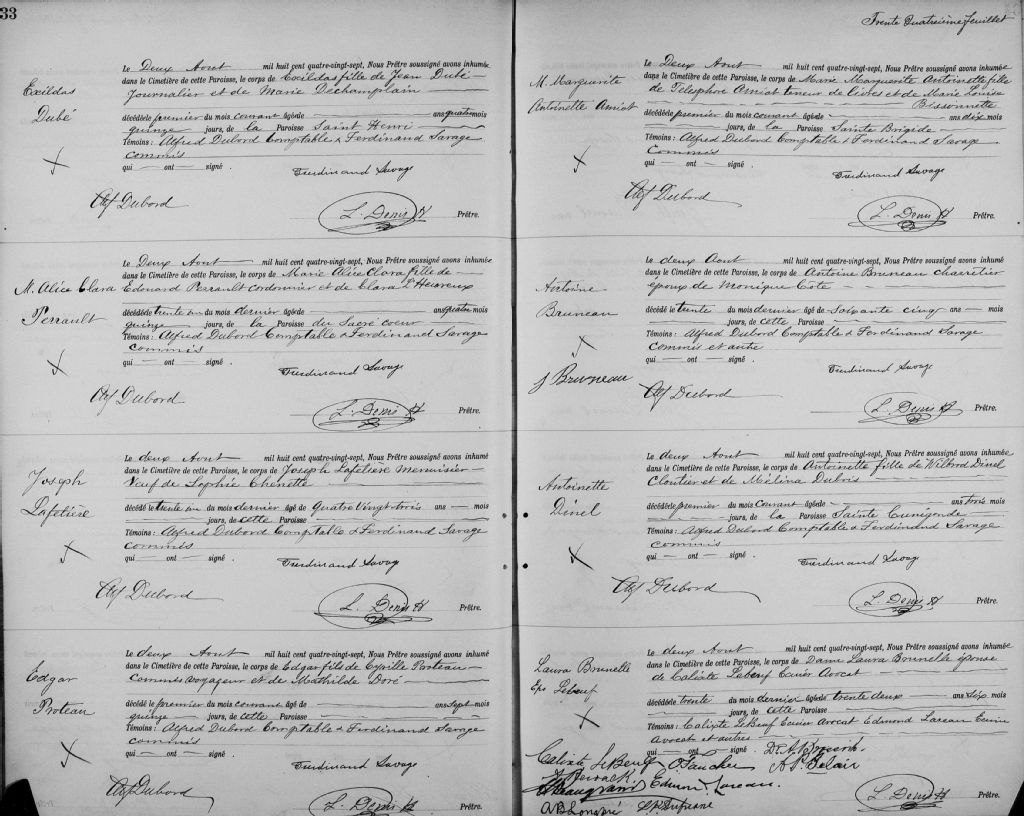 33
Exildas
Dubé
Le Deux Aout mil huit cent quatre-vingt-sept, Nous Prêtre soussigné avons inhumé
dans le Cimetière de cette Paroisse, le corps de Exildas fille de Jean Dubé
Journalier et de Marie Déchamplain
décédé le premier du mois courant âgé de ans quatre mois
quinze jours, de la Paroisse Saint Henri
Témoins: Alfred Dubord Comptable & Ferdinand Savage
commis
qui — ont — signé.
Ferdinand Savage
Alf Dubord
L. Denis Prêtre.
M. Alice Clara
Perrault
Le Deux Aout mil huit cent quatre-vingt-sept, Nous Prêtre soussigné avons inhumé
dans le Cimetière de cette Paroisse, le corps de Marie Alice Clara fille de
Edouard Perrault Cordonnier et de Clara L'Heureux
décédé le trente un du mois dernier âgé de ans quatre mois
quinze jours, de la Paroisse du Sacré coeur
Témoins: Alfred Dubord Comptable & Ferdinand Savage
commis
qui — ont — signé.
Ferdinand Savage
Alf Dubord
L. Denis Prêtre.
Joseph
Lafetière
Le deux Aout mil huit cent quatre-vingt-sept, Nous Prêtre soussigné avons inhumé
dans le Cimetière de cette Paroisse, le corps de Joseph Lafetière Menuisier
Veuf de Sophie Chenette
décédé le trente un du mois dernier âgé de Quatre Vingt trois ans — mois
jours, de cette Paroisse
Témoins: Alfred Dubord Comptable & Ferdinand Savage
commis
qui — ont — signé.
Ferdinand Savage
Alf Dubord
L. Denis Prêtre.
Edgar
Proteau
Le deux Aout mil huit cent quatre-vingt-sept, Nous Prêtre soussigné avons inhumé
dans le Cimetière de cette Paroisse, le corps de Edgar fils de Cyrille Proteau
Commis voyageur et de Mathilde Doré
décédé le premier du mois courant âgé de ans sept mois
quinze jours, de cette Paroisse
Témoins: Alfred Dubord Comptable & Ferdinand Savage
commis
qui — ont — signé.
Ferdinand Savage
Alf Dubord
L. Denis Prêtre.
Trente Quatreième feuillet
M. Marguerite
Antoinette Amiot
Le Deux Aout mil huit cent quatre-vingt-sept, Nous Prêtre soussigné avons inhumé
dans le Cimetière de cette Paroisse, le corps de Marie Marguerite Antoinette fille
de Télesphore Amiot teneur de livres et de Marie Louise
Bissonnette
décédé le premier du mois courant âgé de ans dix mois
jours, de la Paroisse Sainte Brigide
Témoins: Alfred Dubord Comptable & Ferdinand Savage
Commis
qui — ont — signé.
Ferdinand Savage
Alf Dubord
L. Denis Prêtre.
Antoine
Bruneau
Le deux Aout mil huit cent quatre-vingt-sept, Nous Prêtre soussigné avons inhumé
dans le Cimetière de cette Paroisse, le corps de Antoine Bruneau charretier
époux de Monique Côté
décédé le trente du mois dernier âgé de Soixante cinq ans — mois
jours, de cette Paroisse
Témoins: Alfred Dubord Comptable & Ferdinand Savage
commis et autre
qui — ont — signé.
Ferdinand Savage
J Bruneau
Alf Dubord
L. Denis Prêtre.
Antoinette
Dinel
Le deux Aout mil huit cent quatre-vingt-sept, Nous Prêtre soussigné avons inhumé
dans le Cimetière de cette Paroisse, le corps de Antoinette fille de Wilbrod Dinel
Cloutier et de Mélina Dubois
décédé le premier du mois courant âgé de ans trois mois
jours, de la Paroisse Sainte Cunégonde
Témoins: Alfred Dubord Comptable & Ferdinand Savage
commis
qui — ont — signé.
Ferdinand Savage
Alf Dubord
L. Denis Prêtre.
Laura Brunelle
Eps Lebeuf
Le deux Aout mil huit cent quatre-vingt-sept, Nous Prêtre soussigné avons inhumé
dans le Cimetière de cette Paroisse, le corps de Dame Laura Brunelle épouse
de Calixte Lebeuf Ecuier Avocat
décédé le trente du mois dernier âgé de trente deux ans six mois
jours, de cette Paroisse
Témoins: Calixte LeBeuf Ecuier Avocat Edmond Lareau Ecuier
Avocat et autres
qui — ont — signé.
Calixte LeBeuf O Faucher
Edmond Lareau
L. Denis Prêtre.